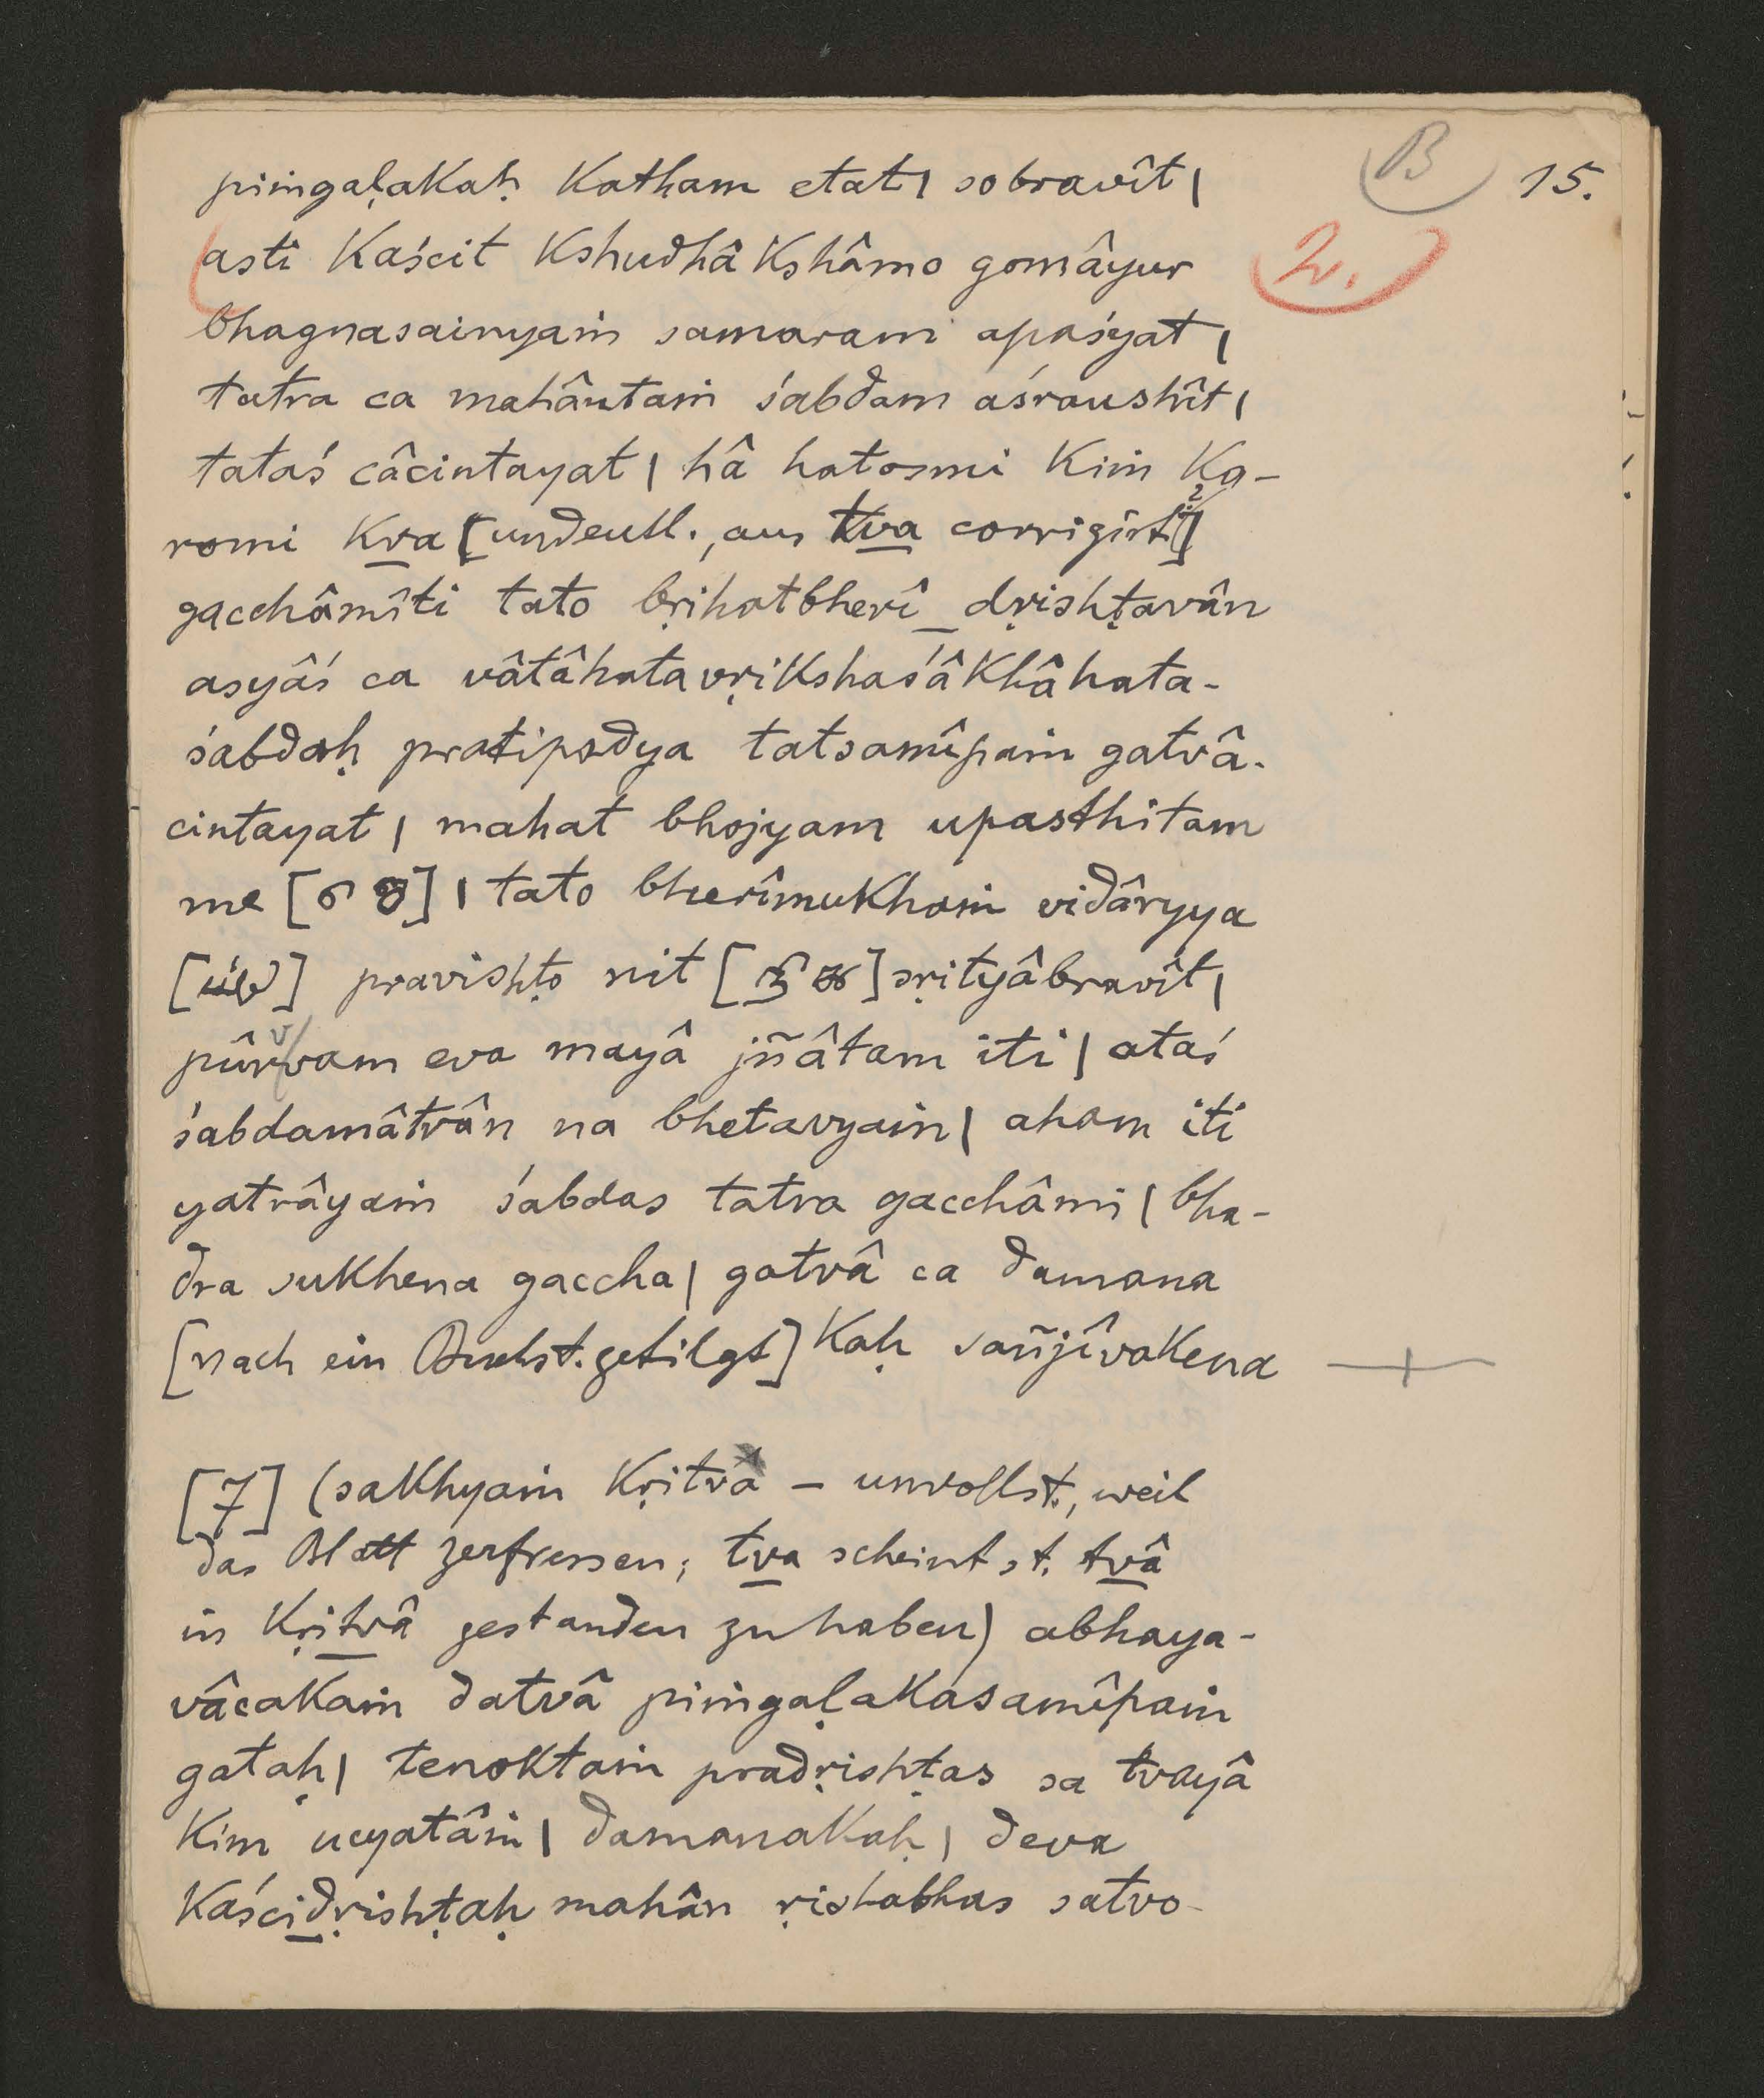 B 15.
piṁgaḷakaḥ katham etat| sobravît|
2.
asti kaścit kshudhâkshâmo gomâyur
bhagnasainyaṁ samaram apaśyat|
tatra ca mahântaṁ śabdam aśraushît|
tataś câcintayat| hâ hatosmi kiṁ ka-
romi kva [undeutl., aus tva corrigirt?]
gacchâmîti tato bṛihatbherî_dṛishṭavân
asyâś ca vâtâhatavṛikshaśâkhâhata-
śabdaḥ pratipadya tatsamîpaṁ gatvâ-
cintayat| mahat bhojyam upasthitam
me [] | tato bherîmukhaṁ vidâryya
[] pravishṭo nit [] sṛityâbravît|
pûrvvam eva mayâ jñâtam iti| ataś
śabdamâtrân na bhetavyaṁ| aham iti
yatrâyaṁ śabdas tatra gacchâmi| bha-
dra sukhena gaccha| gatvâ ca damana
[nach ein Buchst. getilgt] kaḥ sañjîvakena
[7] (sakhyaṁ kṛitva – unvollst., weil
das Blatt zerfressen; tva scheint st. tvâ
in kṛitvâ gestanden zu haben) abhaya-
vâcakaṁ datvâ piṁgaḷakasamîpaṁ
gataḥ| tenoktaṁ pradṛishṭas sa tvayâ
kim ucyatâṁ| damanakaḥ| deva
kaścidṛishṭaḥ mahân ṛishabhas satvo-